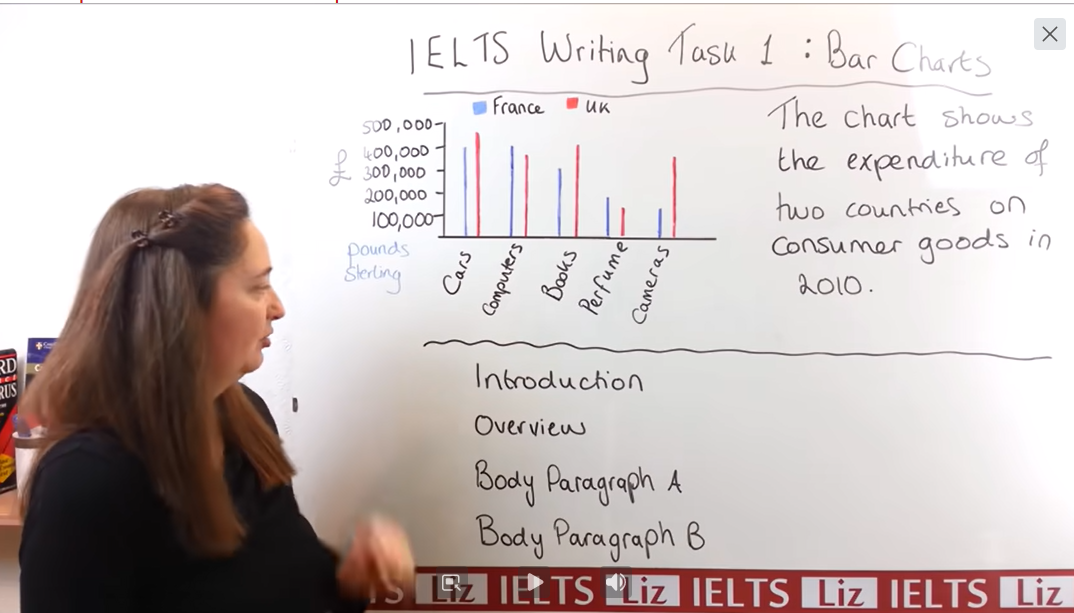 IELTS Writing Task 1 : Bar Charts
France UK
500,000
400,000
£
300,000
200,000
100,000
pounds
sterling
Cars
Computers
Books
Perfume
Cameras
The chart shows
the expenditure of
two countries on
consumer goods in
2010.
Introduction
Overview
Body Paragraph A
Body Paragraph B
Liz IELTS Liz IELTS Liz IELTS Liz